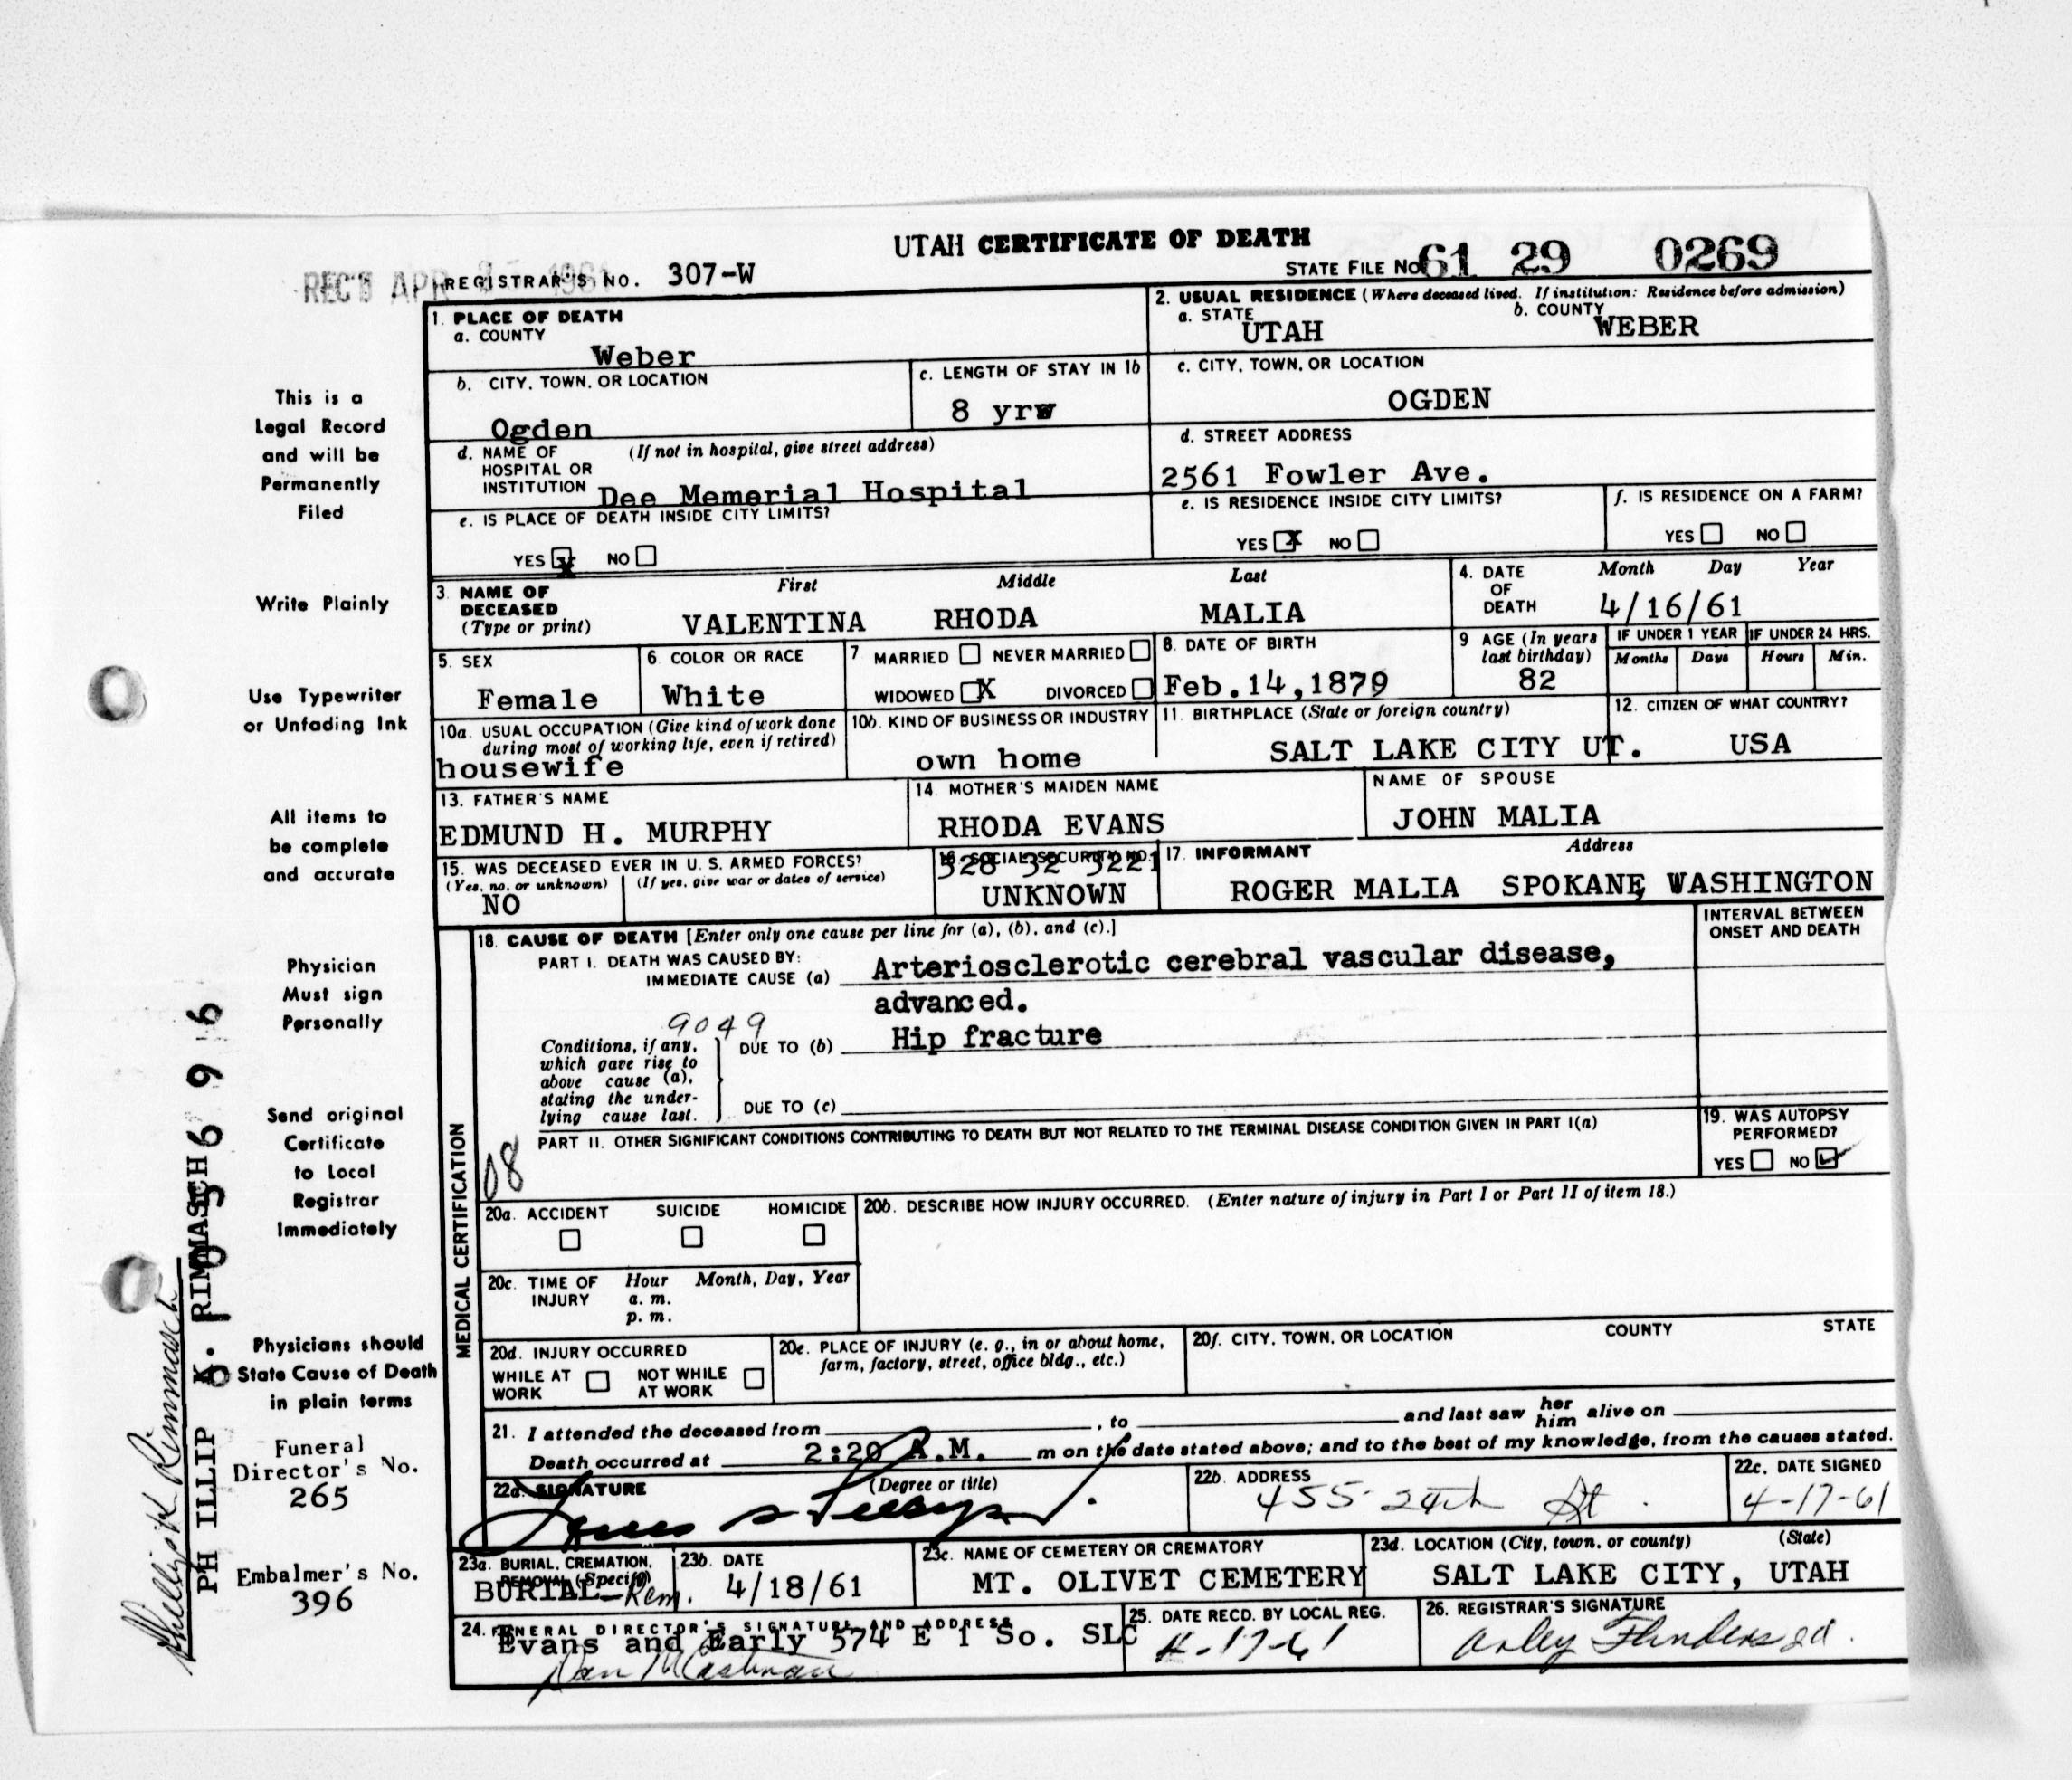 UTAH CERTIFICATE OF DEATH
REC'D APR 1961 REGISTRAR'S NO. 307-W
STATE FILE NO. 61 29 0269
1. PLACE OF DEATH
a. COUNTY
Weber
2. USUAL RESIDENCE (Where deceased lived. If institution: Residence before admission)
a. STATE UTAH
b. COUNTY WEBER
b. CITY, TOWN, OR LOCATION
Ogden
c. LENGTH OF STAY IN 1b
8 yrs
c. CITY, TOWN, OR LOCATION
OGDEN
d. NAME OF HOSPITAL OR INSTITUTION (If not in hospital, give street address)
Dee Memerial Hospital
d. STREET ADDRESS
2561 Fowler Ave.
e. IS PLACE OF DEATH INSIDE CITY LIMITS?
YES X NO
e. IS RESIDENCE INSIDE CITY LIMITS?
YES X NO
f. IS RESIDENCE ON A FARM?
YES NO
3. NAME OF DECEASED (Type or print)
First Middle Last
VALENTINA RHODA MALIA
4. DATE OF DEATH
Month Day Year
4/16/61
5. SEX
Female
6. COLOR OR RACE
White
7 MARRIED NEVER MARRIED
WIDOWED X DIVORCED
8. DATE OF BIRTH
Feb.14,1879
9 AGE (In years last birthday)
82
IF UNDER 1 YEAR
Months Days
IF UNDER 24 HRS.
Hours Min.
10a. USUAL OCCUPATION (Give kind of work done during most of working life, even if retired)
housewife
10b. KIND OF BUSINESS OR INDUSTRY
own home
11. BIRTHPLACE (State or foreign country)
SALT LAKE CITY UT.
12. CITIZEN OF WHAT COUNTRY?
USA
13. FATHER'S NAME
EDMUND H. MURPHY
14. MOTHER'S MAIDEN NAME
RHODA EVANS
NAME OF SPOUSE
JOHN MALIA
15. WAS DECEASED EVER IN U. S. ARMED FORCES?
(Yes, no, or unknown) (If yes, give war or dates of service)
NO
16. SOCIAL SECURITY NO.
528 32 5221
UNKNOWN
17. INFORMANT Address
ROGER MALIA SPOKANE, WASHINGTON
MEDICAL CERTIFICATION
18. CAUSE OF DEATH [Enter only one cause per line for (a), (b), and (c).]
INTERVAL BETWEEN ONSET AND DEATH
PART I. DEATH WAS CAUSED BY:
IMMEDIATE CAUSE (a) Arteriosclerotic cerebral vascular disease,
advanced.
9049
Conditions, if any, which gave rise to above cause (a), stating the underlying cause last.
DUE TO (b) Hip fracture
DUE TO (c)
08
PART II. OTHER SIGNIFICANT CONDITIONS CONTRIBUTING TO DEATH BUT NOT RELATED TO THE TERMINAL DISEASE CONDITION GIVEN IN PART I(a)
19. WAS AUTOPSY PERFORMED?
YES NO
20a. ACCIDENT SUICIDE HOMICIDE
20b. DESCRIBE HOW INJURY OCCURRED. (Enter nature of injury in Part I or Part II of item 18.)
20c. TIME OF INJURY Hour Month, Day, Year
a. m.
p. m.
20d. INJURY OCCURRED
WHILE AT WORK NOT WHILE AT WORK
20e. PLACE OF INJURY (e. g., in or about home, farm, factory, street, office bldg., etc.)
20f. CITY, TOWN, OR LOCATION COUNTY STATE
21. I attended the deceased from , to and last saw her him alive on
Death occurred at 2:20 A.M. m on the date stated above; and to the best of my knowledge, from the causes stated.
22a. SIGNATURE (Degree or title)
22b. ADDRESS
455-24th St.
22c. DATE SIGNED
4-17-61
23a. BURIAL, CREMATION, REMOVAL (Specify)
BURIAL-Rem.
23b. DATE
4/18/61
23c. NAME OF CEMETERY OR CREMATORY
MT. OLIVET CEMETERY
23d. LOCATION (City, town, or county) (State)
SALT LAKE CITY, UTAH
24. FUNERAL DIRECTOR'S SIGNATURE AND ADDRESS
Evans and Early 574 E 1 So. SLC
25. DATE RECD. BY LOCAL REG.
4-17-61
26. REGISTRAR'S SIGNATURE
This is a
Legal Record
and will be
Permanently
Filed
Write Plainly
Use Typewriter
or Unfading Ink
All items to
be complete
and accurate
Physician
Must sign
Personally
Send original
Certificate
to Local
Registrar
Immediately
Physicians should
State Cause of Death
in plain terms
Funeral
Director's No.
265
Embalmer's No.
396
PHILLIP K. RIMMASCH
Phillip K Rimmasch